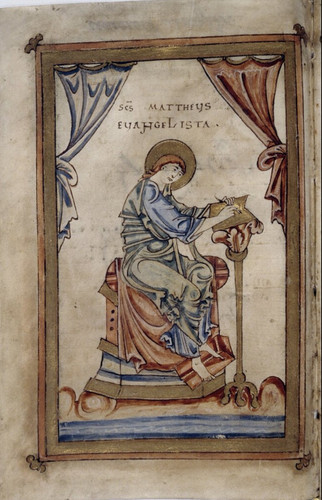 SC̄S MATTHEUS
EUANGELISTA.